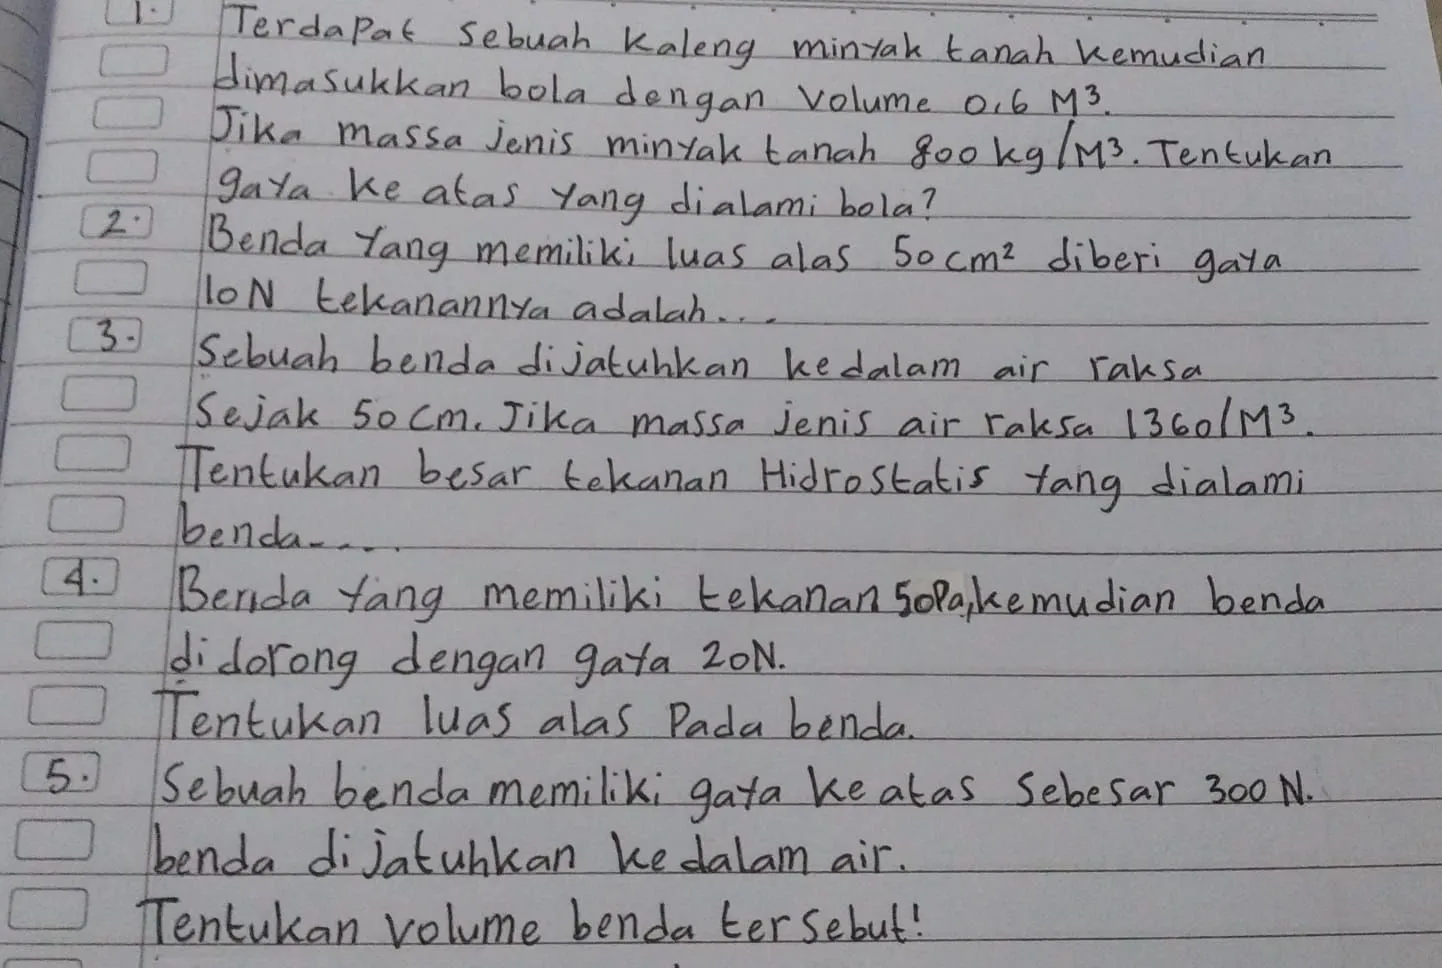 1. Terdapat sebuah kaleng minyak tanah kemudian
dimasukkan bola dengan volume 0,6 M³.
Jika massa jenis minyak tanah 800 kg/M³. Tentukan
gaya ke atas yang dialami bola?
2. Benda yang memiliki luas alas 50 cm² diberi gaya
10N tekanannya adalah...
3. Sebuah benda dijatuhkan kedalam air raksa
Sejak 50 cm. Jika massa jenis air raksa 1360/M³.
Tentukan besar tekanan Hidrostatis yang dialami
benda....
4. Benda yang memiliki tekanan 50Pa, kemudian benda
didorong dengan gaya 20N.
Tentukan luas alas Pada benda.
5. Sebuah benda memiliki gaya ke atas sebesar 300 N.
benda dijatuhkan kedalam air.
Tentukan volume benda tersebut!